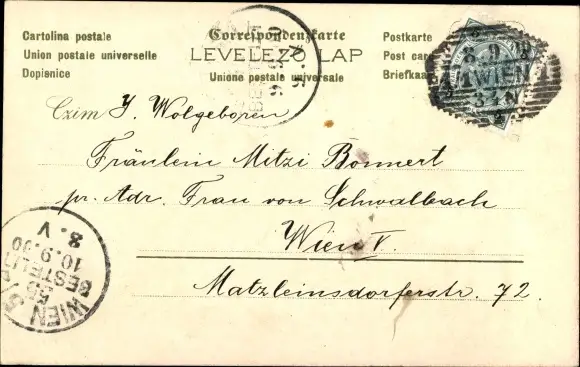 Cartolina postale Correspondenzkarte Postkarte
Union postale universelle LEVELEZŐ LAP Post card
Dopisnice Unione postale universale Briefkaart
8.9.00
1 WIEN 1
Czim Y. Wolgeboren
Fräulein Mitzi Bonnert
pr. Adr. Frau von Schwalbach
Wien V.
Matzleinsdorferstr. 72.
WIEN
BESTELLT
10.9.00
8. V